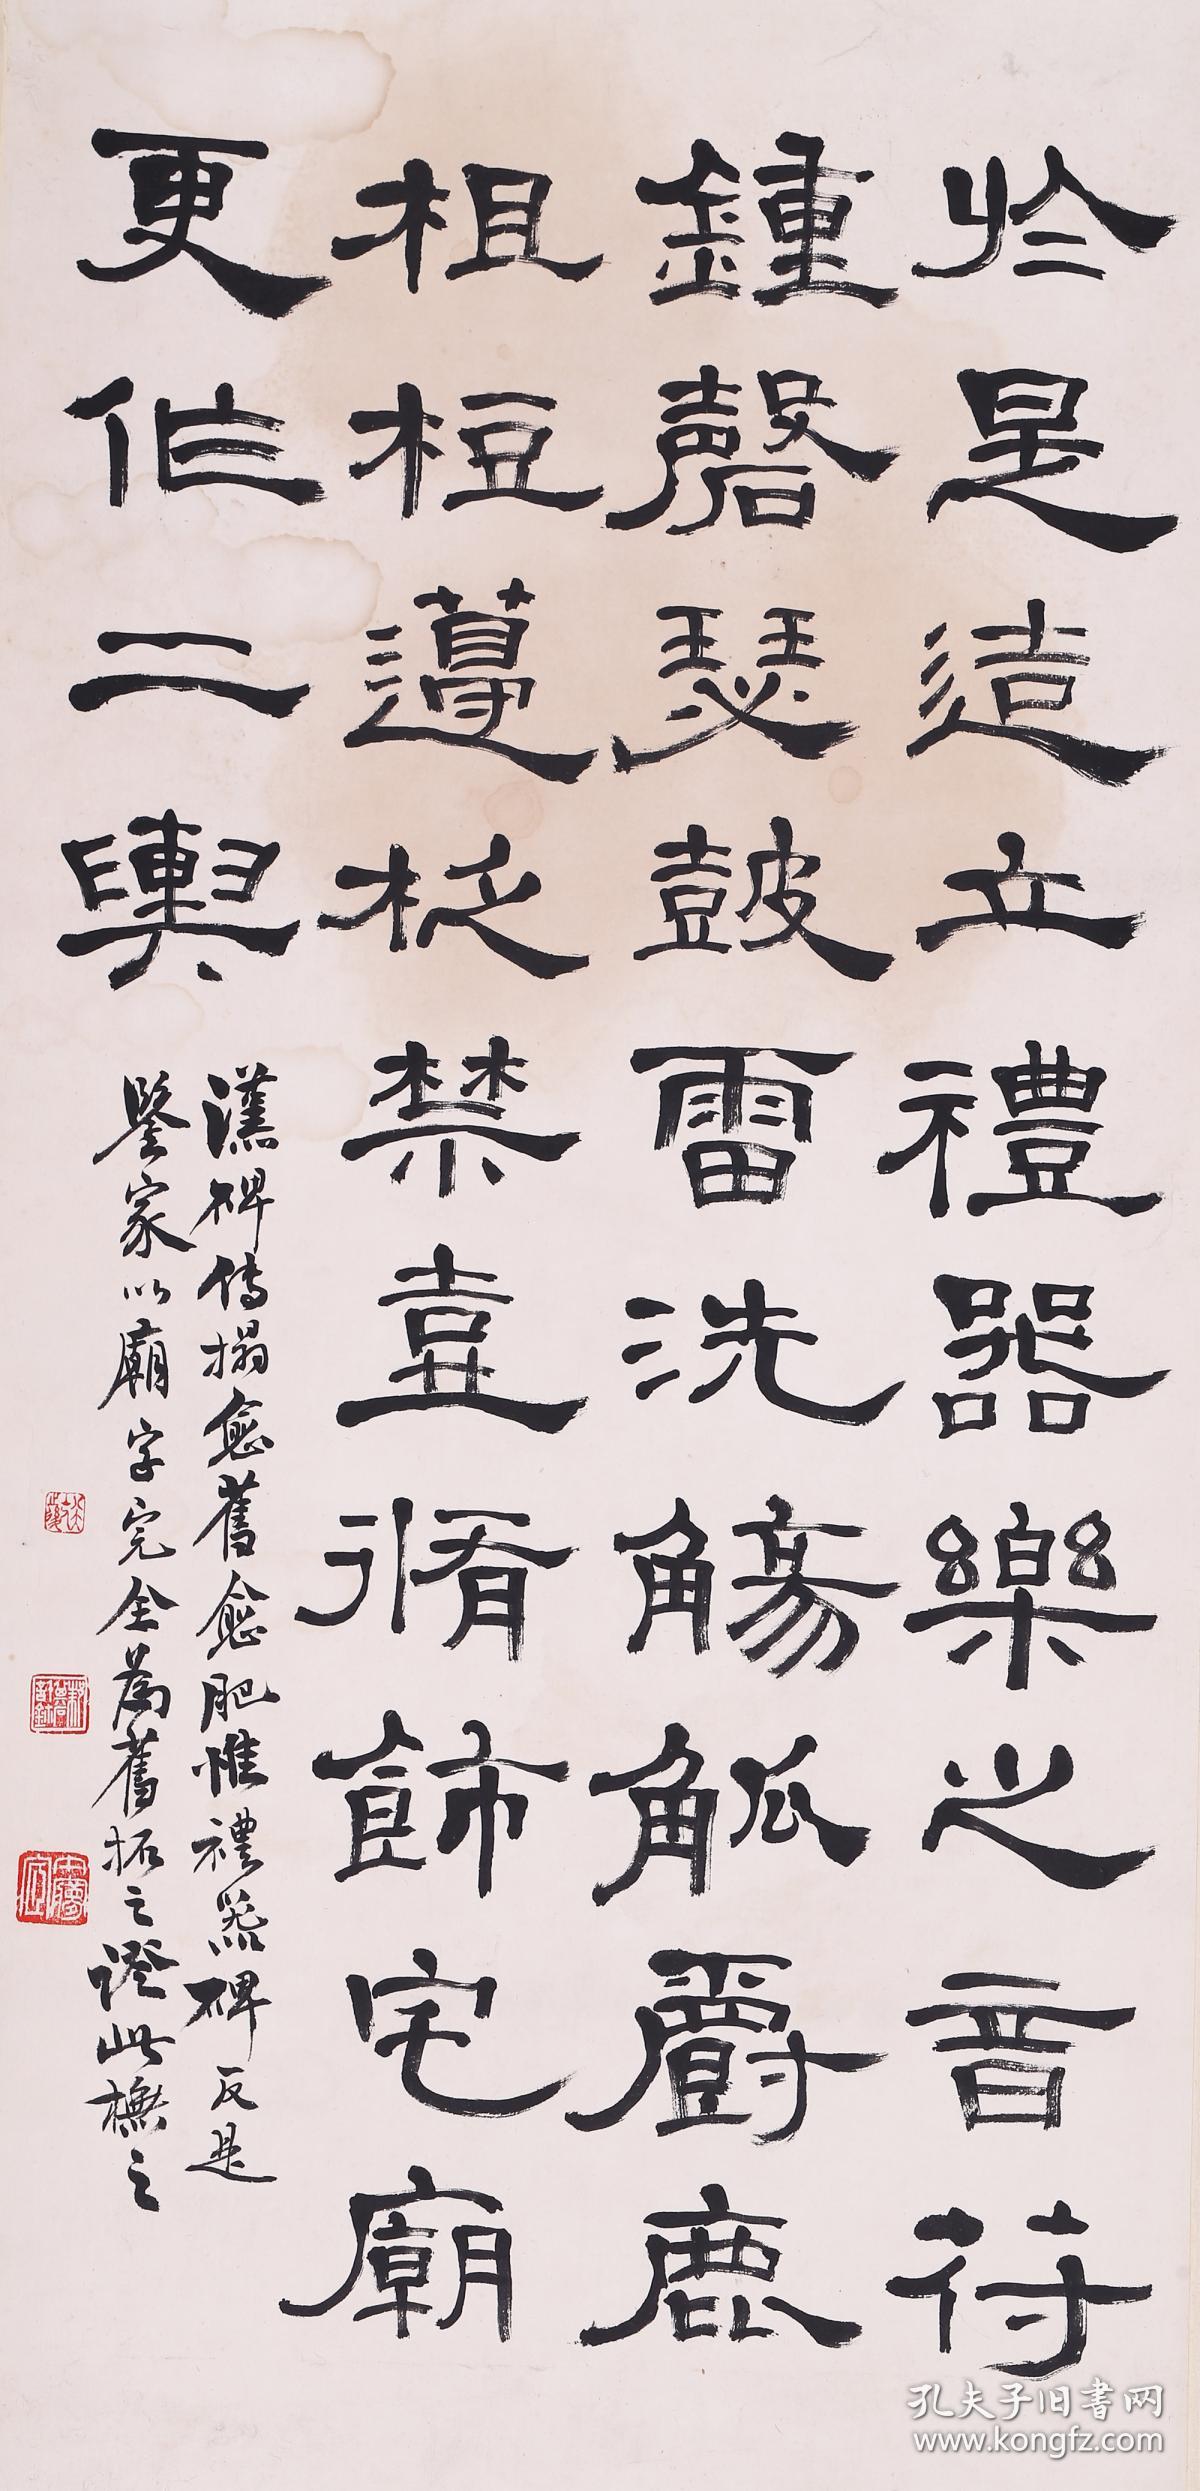 於是造立禮器樂之音苻
鍾磬瑟皷雷洗觴觚爵鹿
柤梪籩柉禁壺脩飾宅廟
更作二輿
漢碑傳搨愈舊愈肥惟禮器碑反是
鑒家以廟字完全為舊拓之證此橅之
孔夫子旧书网
www.kongfz.com